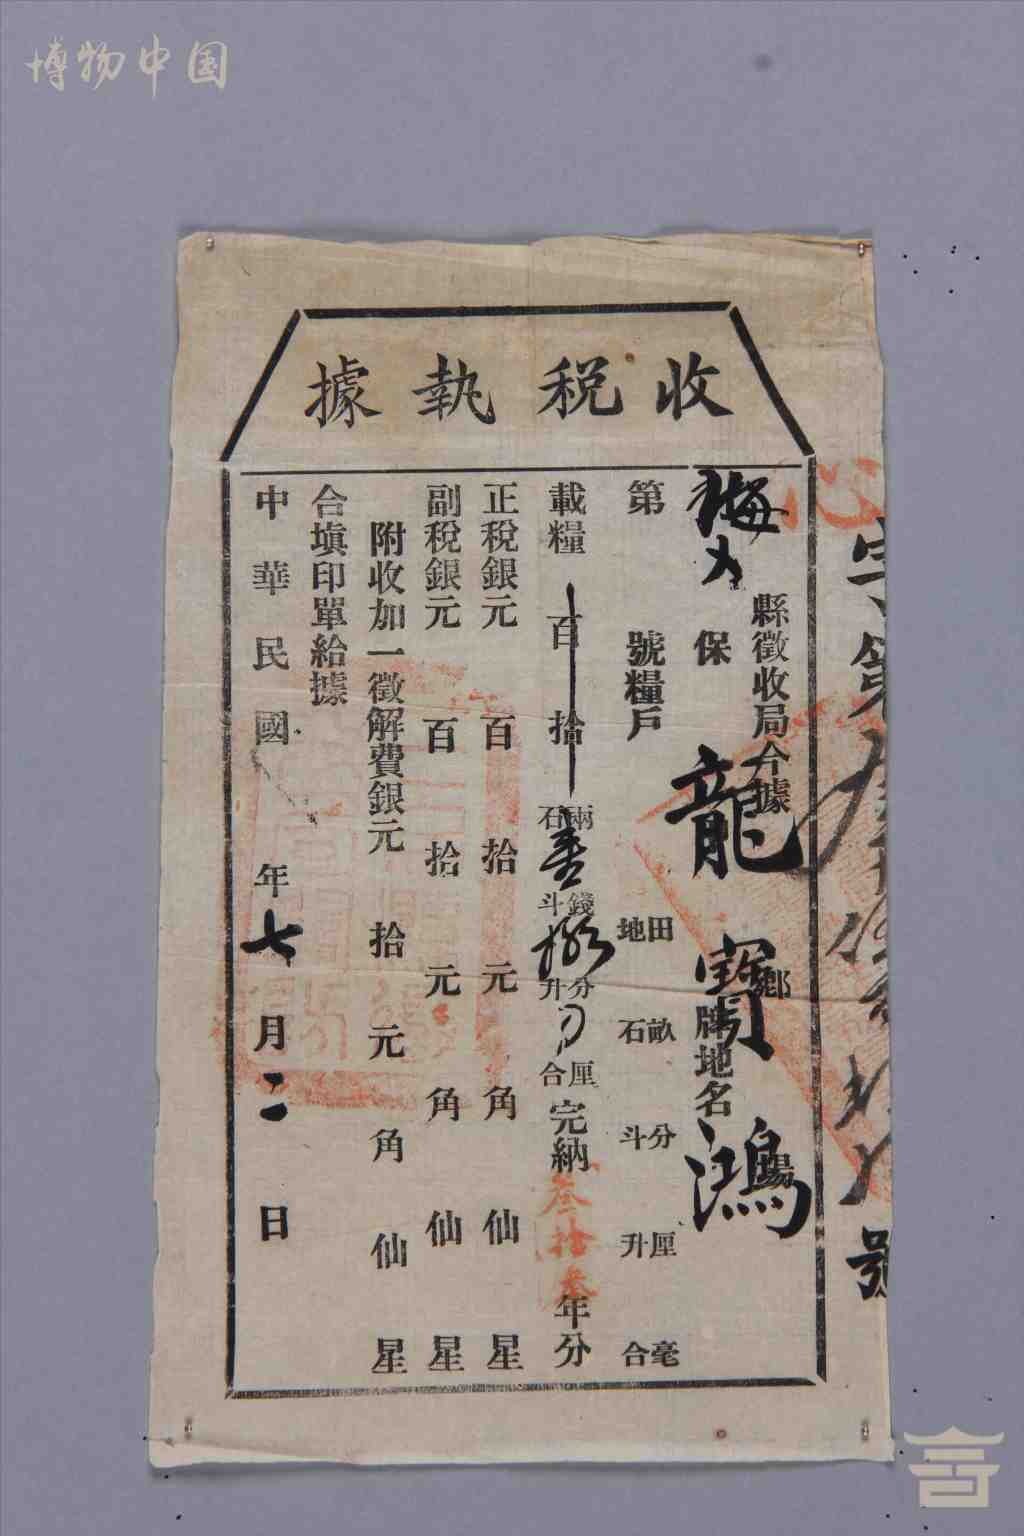 博物中国
收税執據
字第
號
縣徵收局今據
鄉 場
梅 保 牌地名
龍寶鴻
第 號糧戶 田地 畝石 分斗 厘升 毫合
載糧 百 拾 兩石 錢斗 分升 厘合 完納 叁拾叁 年分
正税銀元 百 拾 元 角 仙 星
副税銀元 百 拾 元 角 仙 星
附收加一徵解費銀元 拾 元 角 仙 星
合填印單給據
中華民國 年七月二日